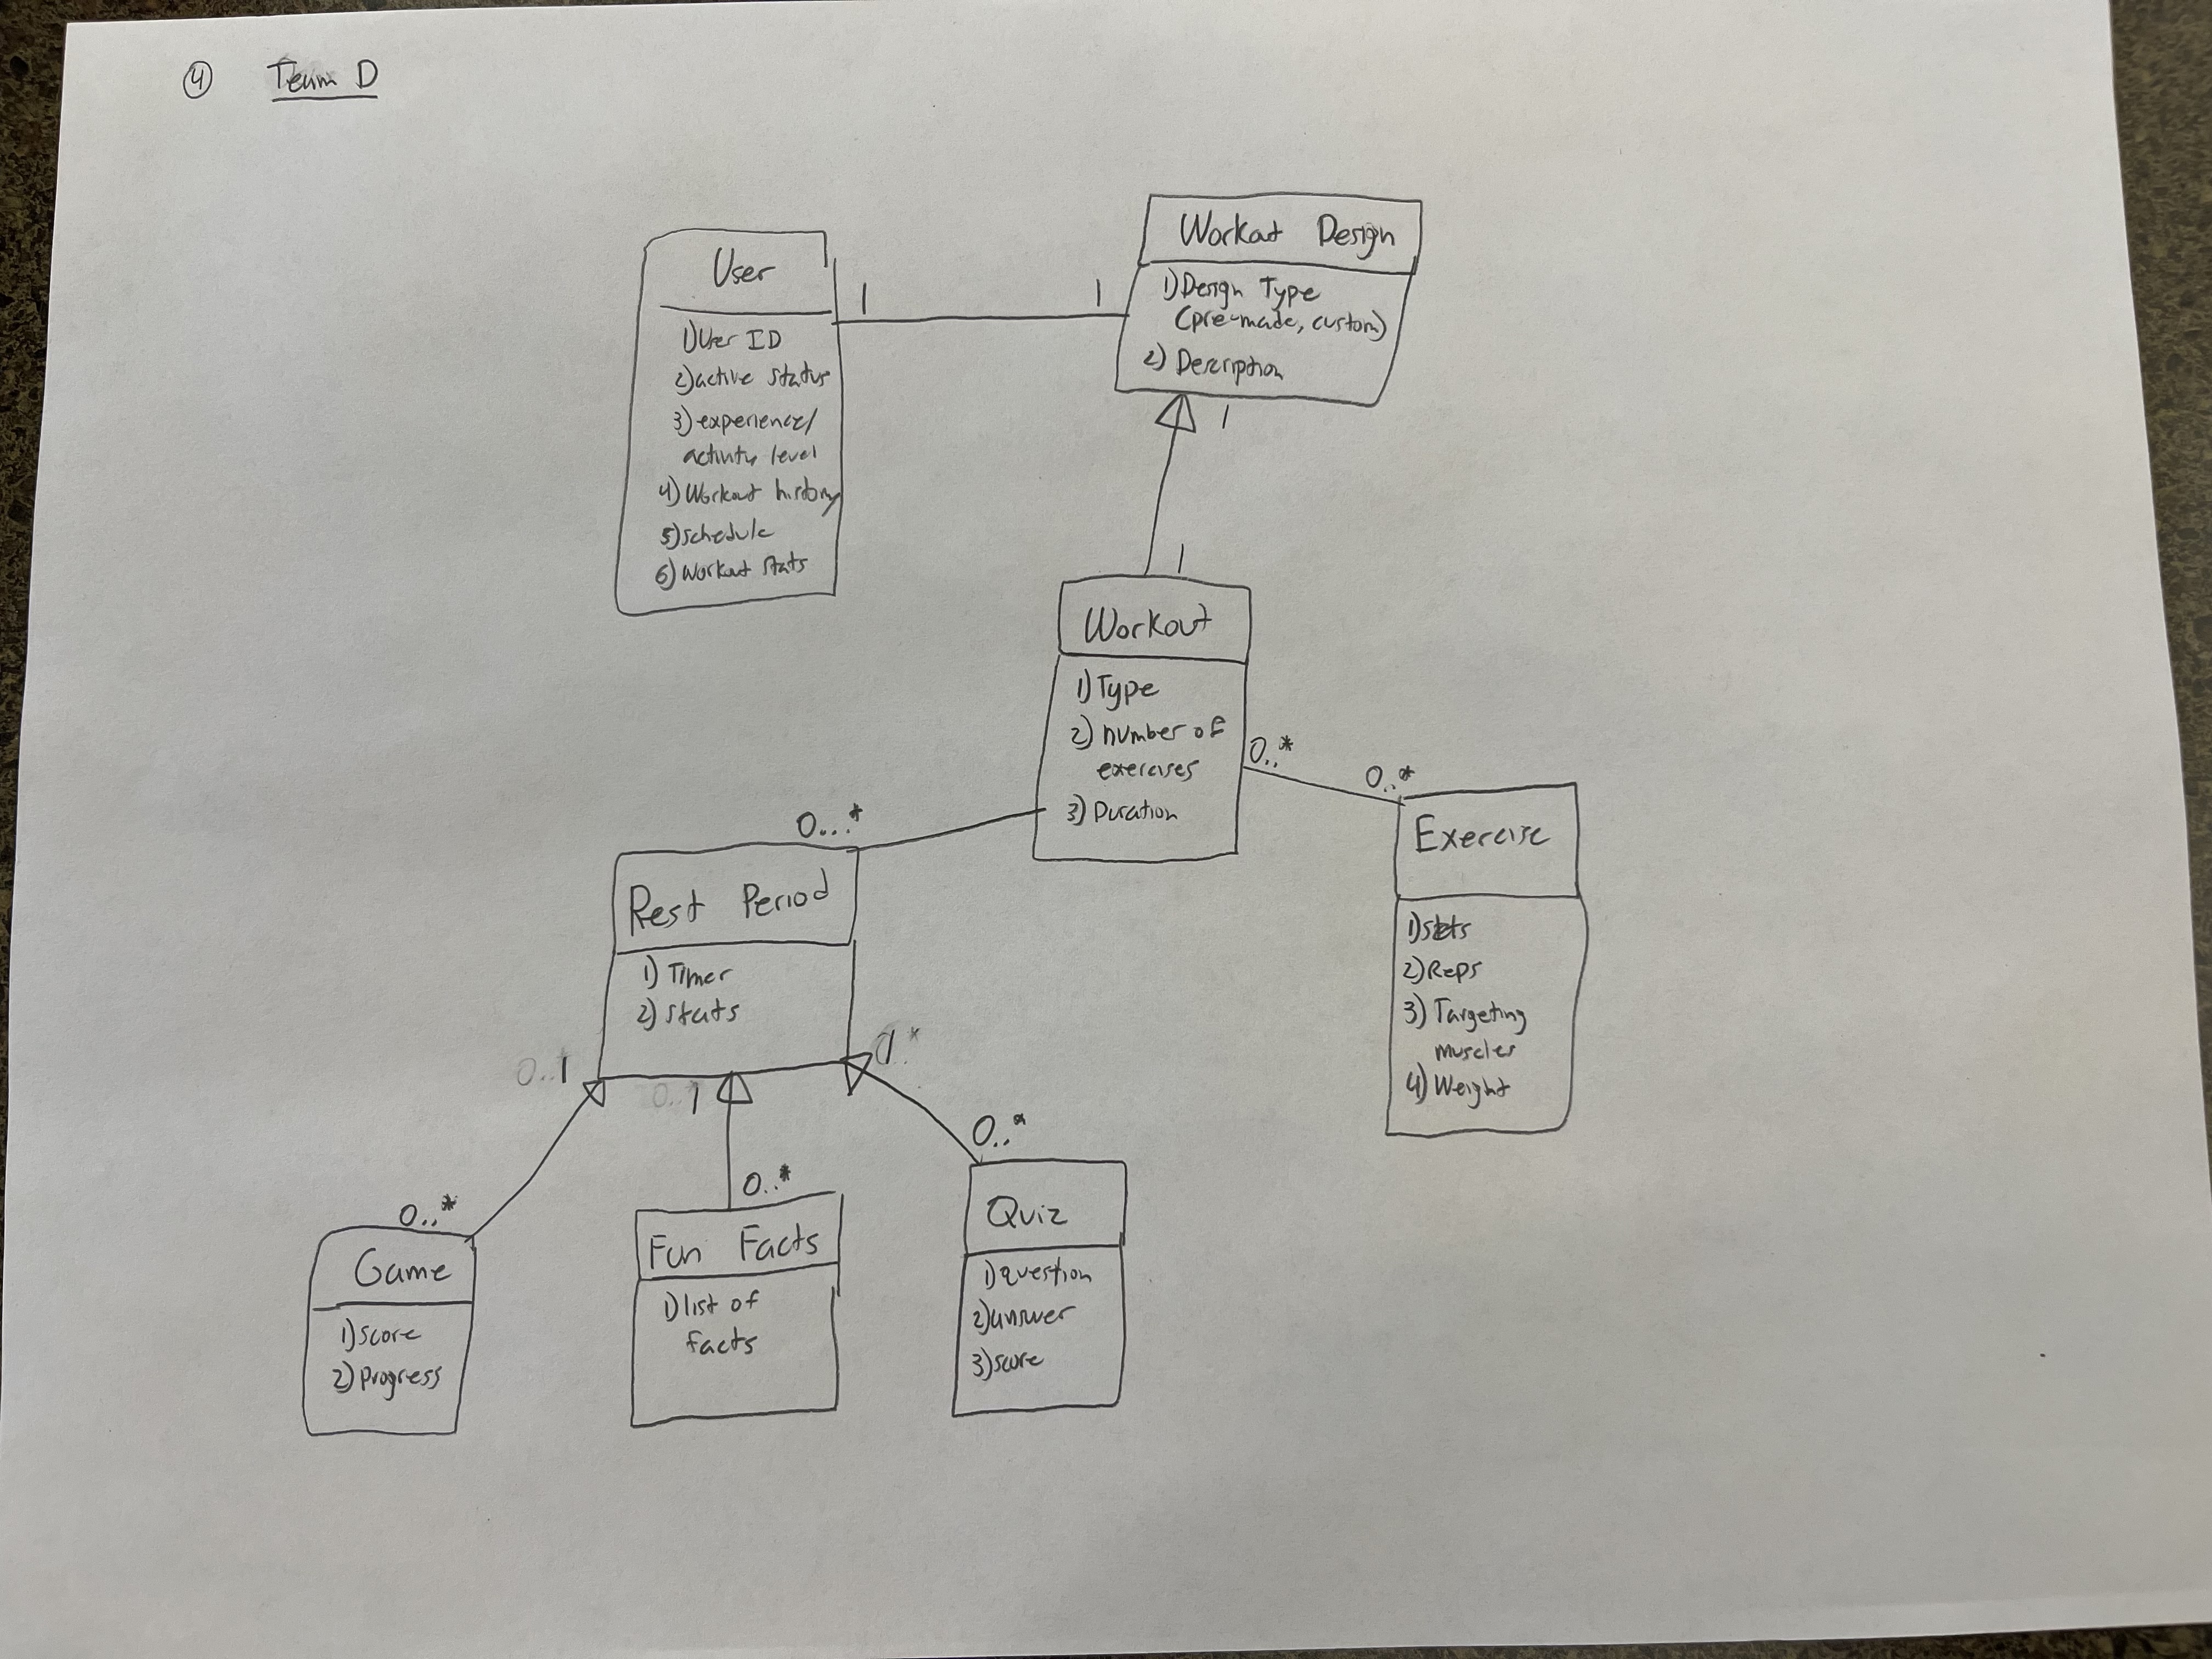 ④ Team D
User
1) User ID
2) active status
3) experience/
activity level
4) Workout history
5) schedule
6) Workout stats
1
1
Workout Design
1) Design Type
(pre-made, custom)
2) Description
1
1
Workout
1) Type
2) number of
exercises
3) Duration
0..*
0..*
Exercise
1) sets
2) Reps
3) Targeting
muscles
4) Weight
0...*
Rest Period
1) Timer
2) stats
0..1
0..1
0..*
Game
1) score
2) progress
0..*
Fun Facts
1) list of
facts
0..*
Quiz
1) question
2) answer
3) score